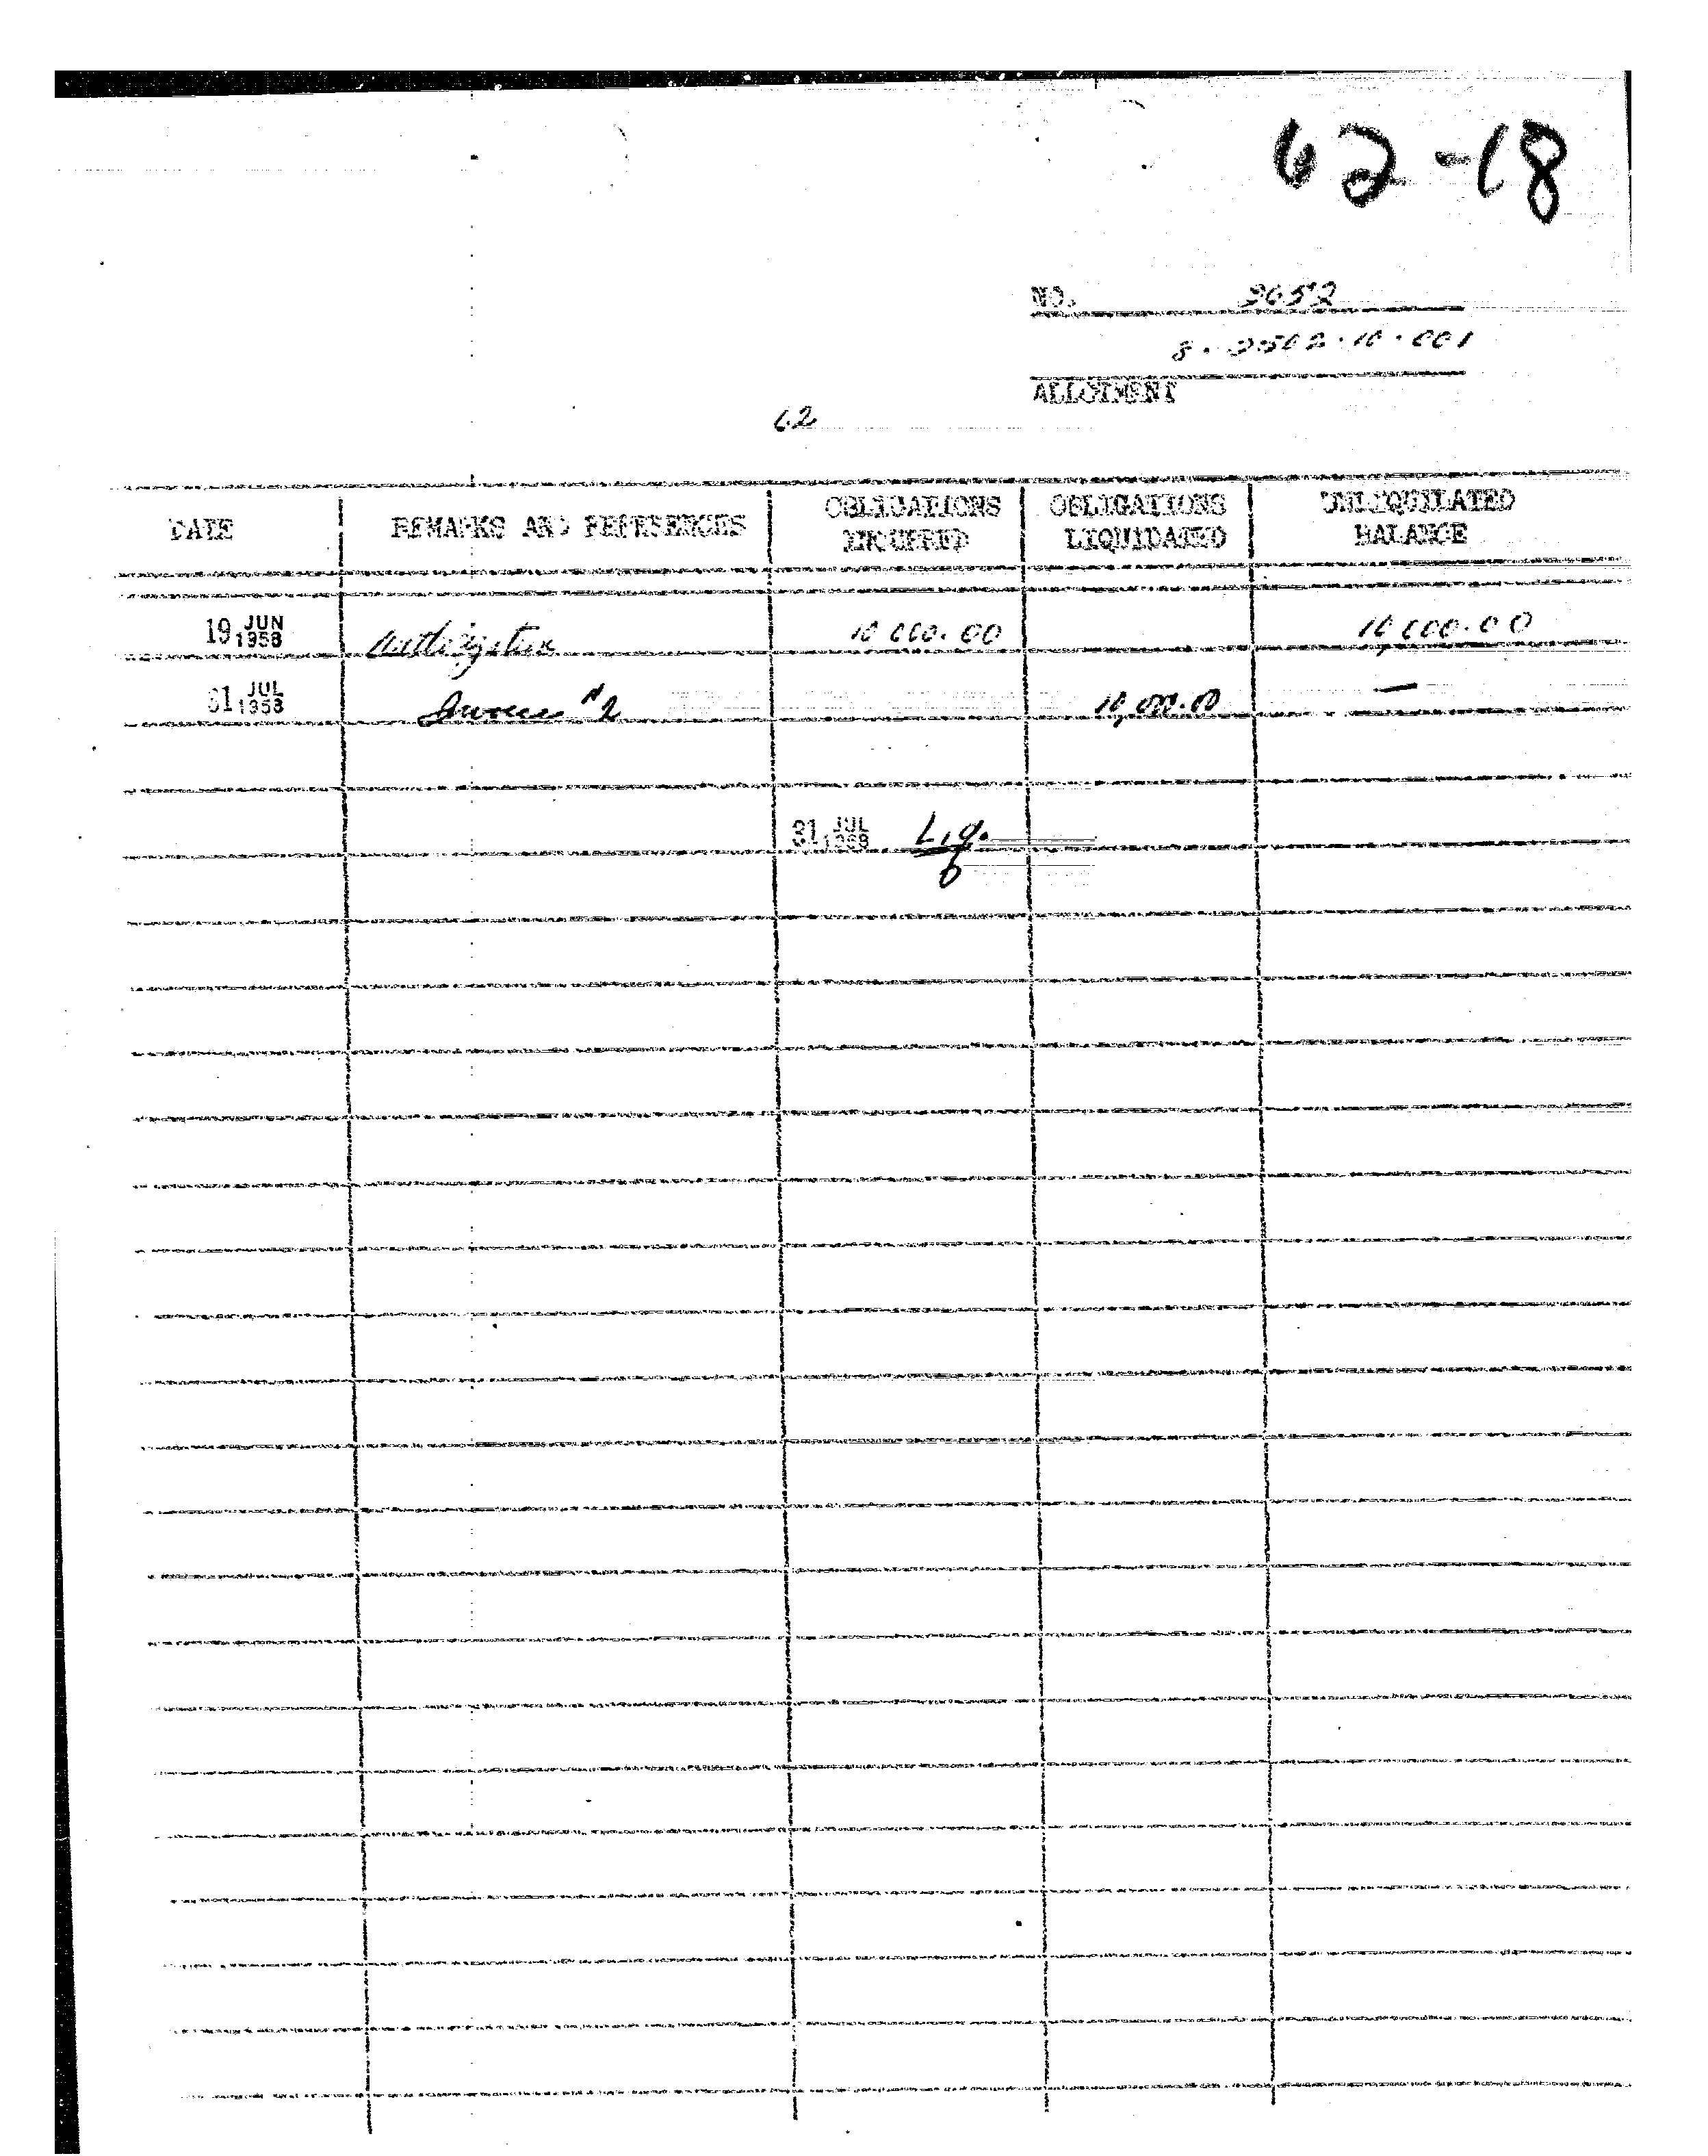 62-18
NO. 3652
8-2502-10-001
ALLOTMENT
62
DATE REMARKS AND REFERENCES OBLIGATIONS INCURRED OBLIGATIONS LIQUIDATED UNLIQUIDATED BALANCE
19 JUN 1958 Authorization 10 000.00 10,000.00
31 JUL 1958 Invoice #2 10,000.00 —
31 JUL 1958 Liq.